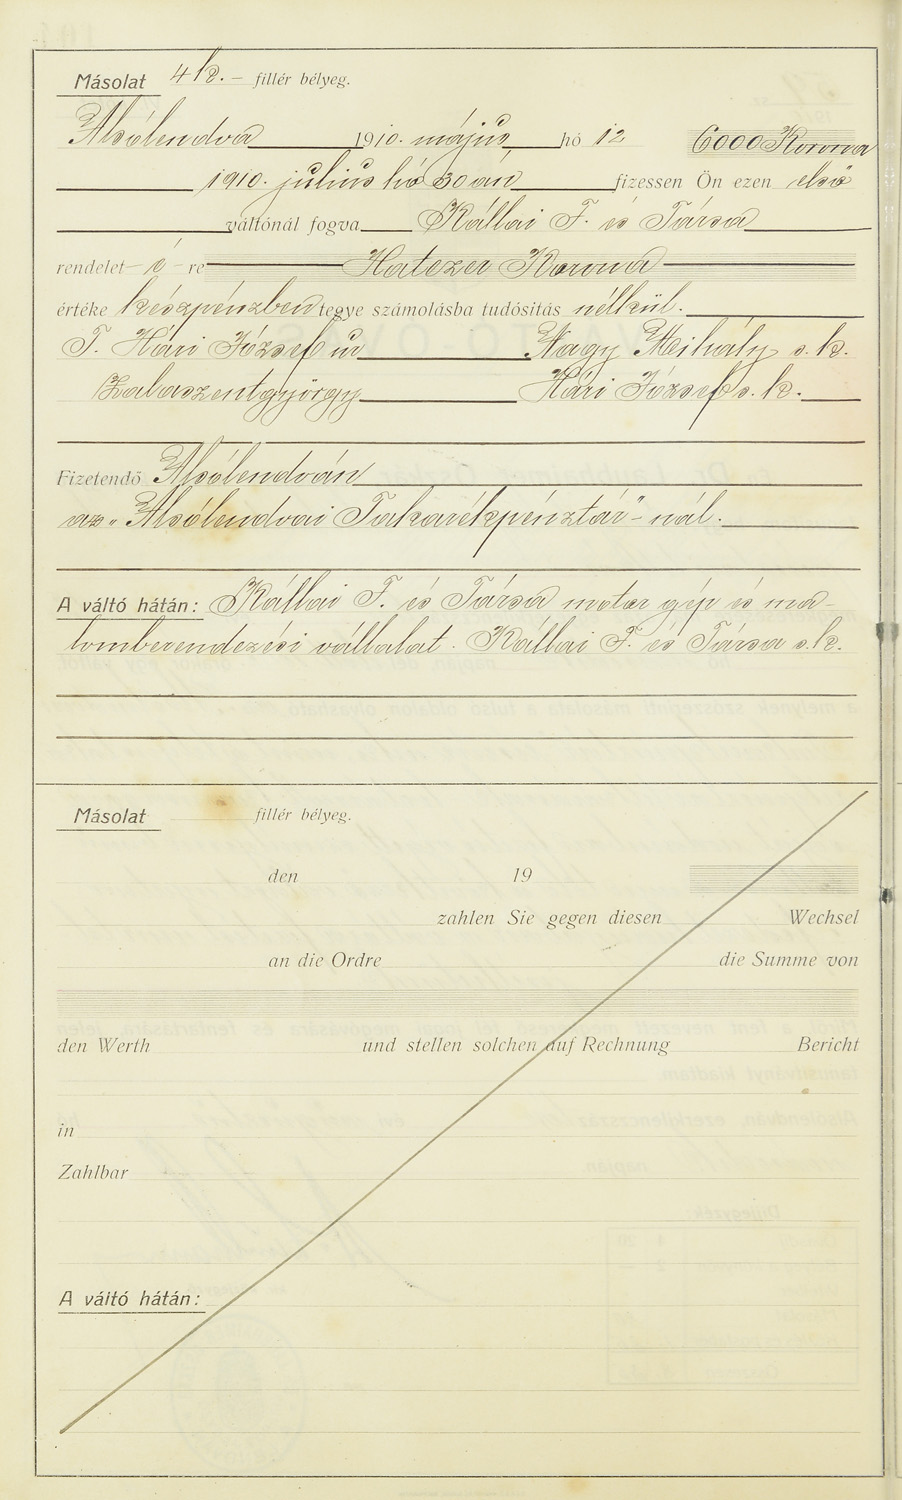 Másolat 4 k. – fillér bélyeg.
Alsólendva 1910. május hó 12 6000 Korona
1910. július hó 30 án fizessen Ön ezen első
váltónál fogva Kállai F. és Társa
rendelet- é - re Hatezer Korona
értéke készpénzben tegye számolásba tudósítás nélkül.
T. Hári József úr Nagy Mihály s. k.
Zalaszentgyörgy Hári József s. k.
Fizetendő Alsólendván
az „Alsólendvai Takarékpénztár"- nál.
A váltó hátán: Kállai F. és Társa motor gép és ma-
lomberendezési vállalat. Kállai F. és Társa s. k.
Másolat fillér bélyeg.
den 19
zahlen Sie gegen diesen Wechsel
an die Ordre die Summe von
den Werth und stellen solchen auf Rechnung Bericht
in
Zahlbar
A váltó hátán: